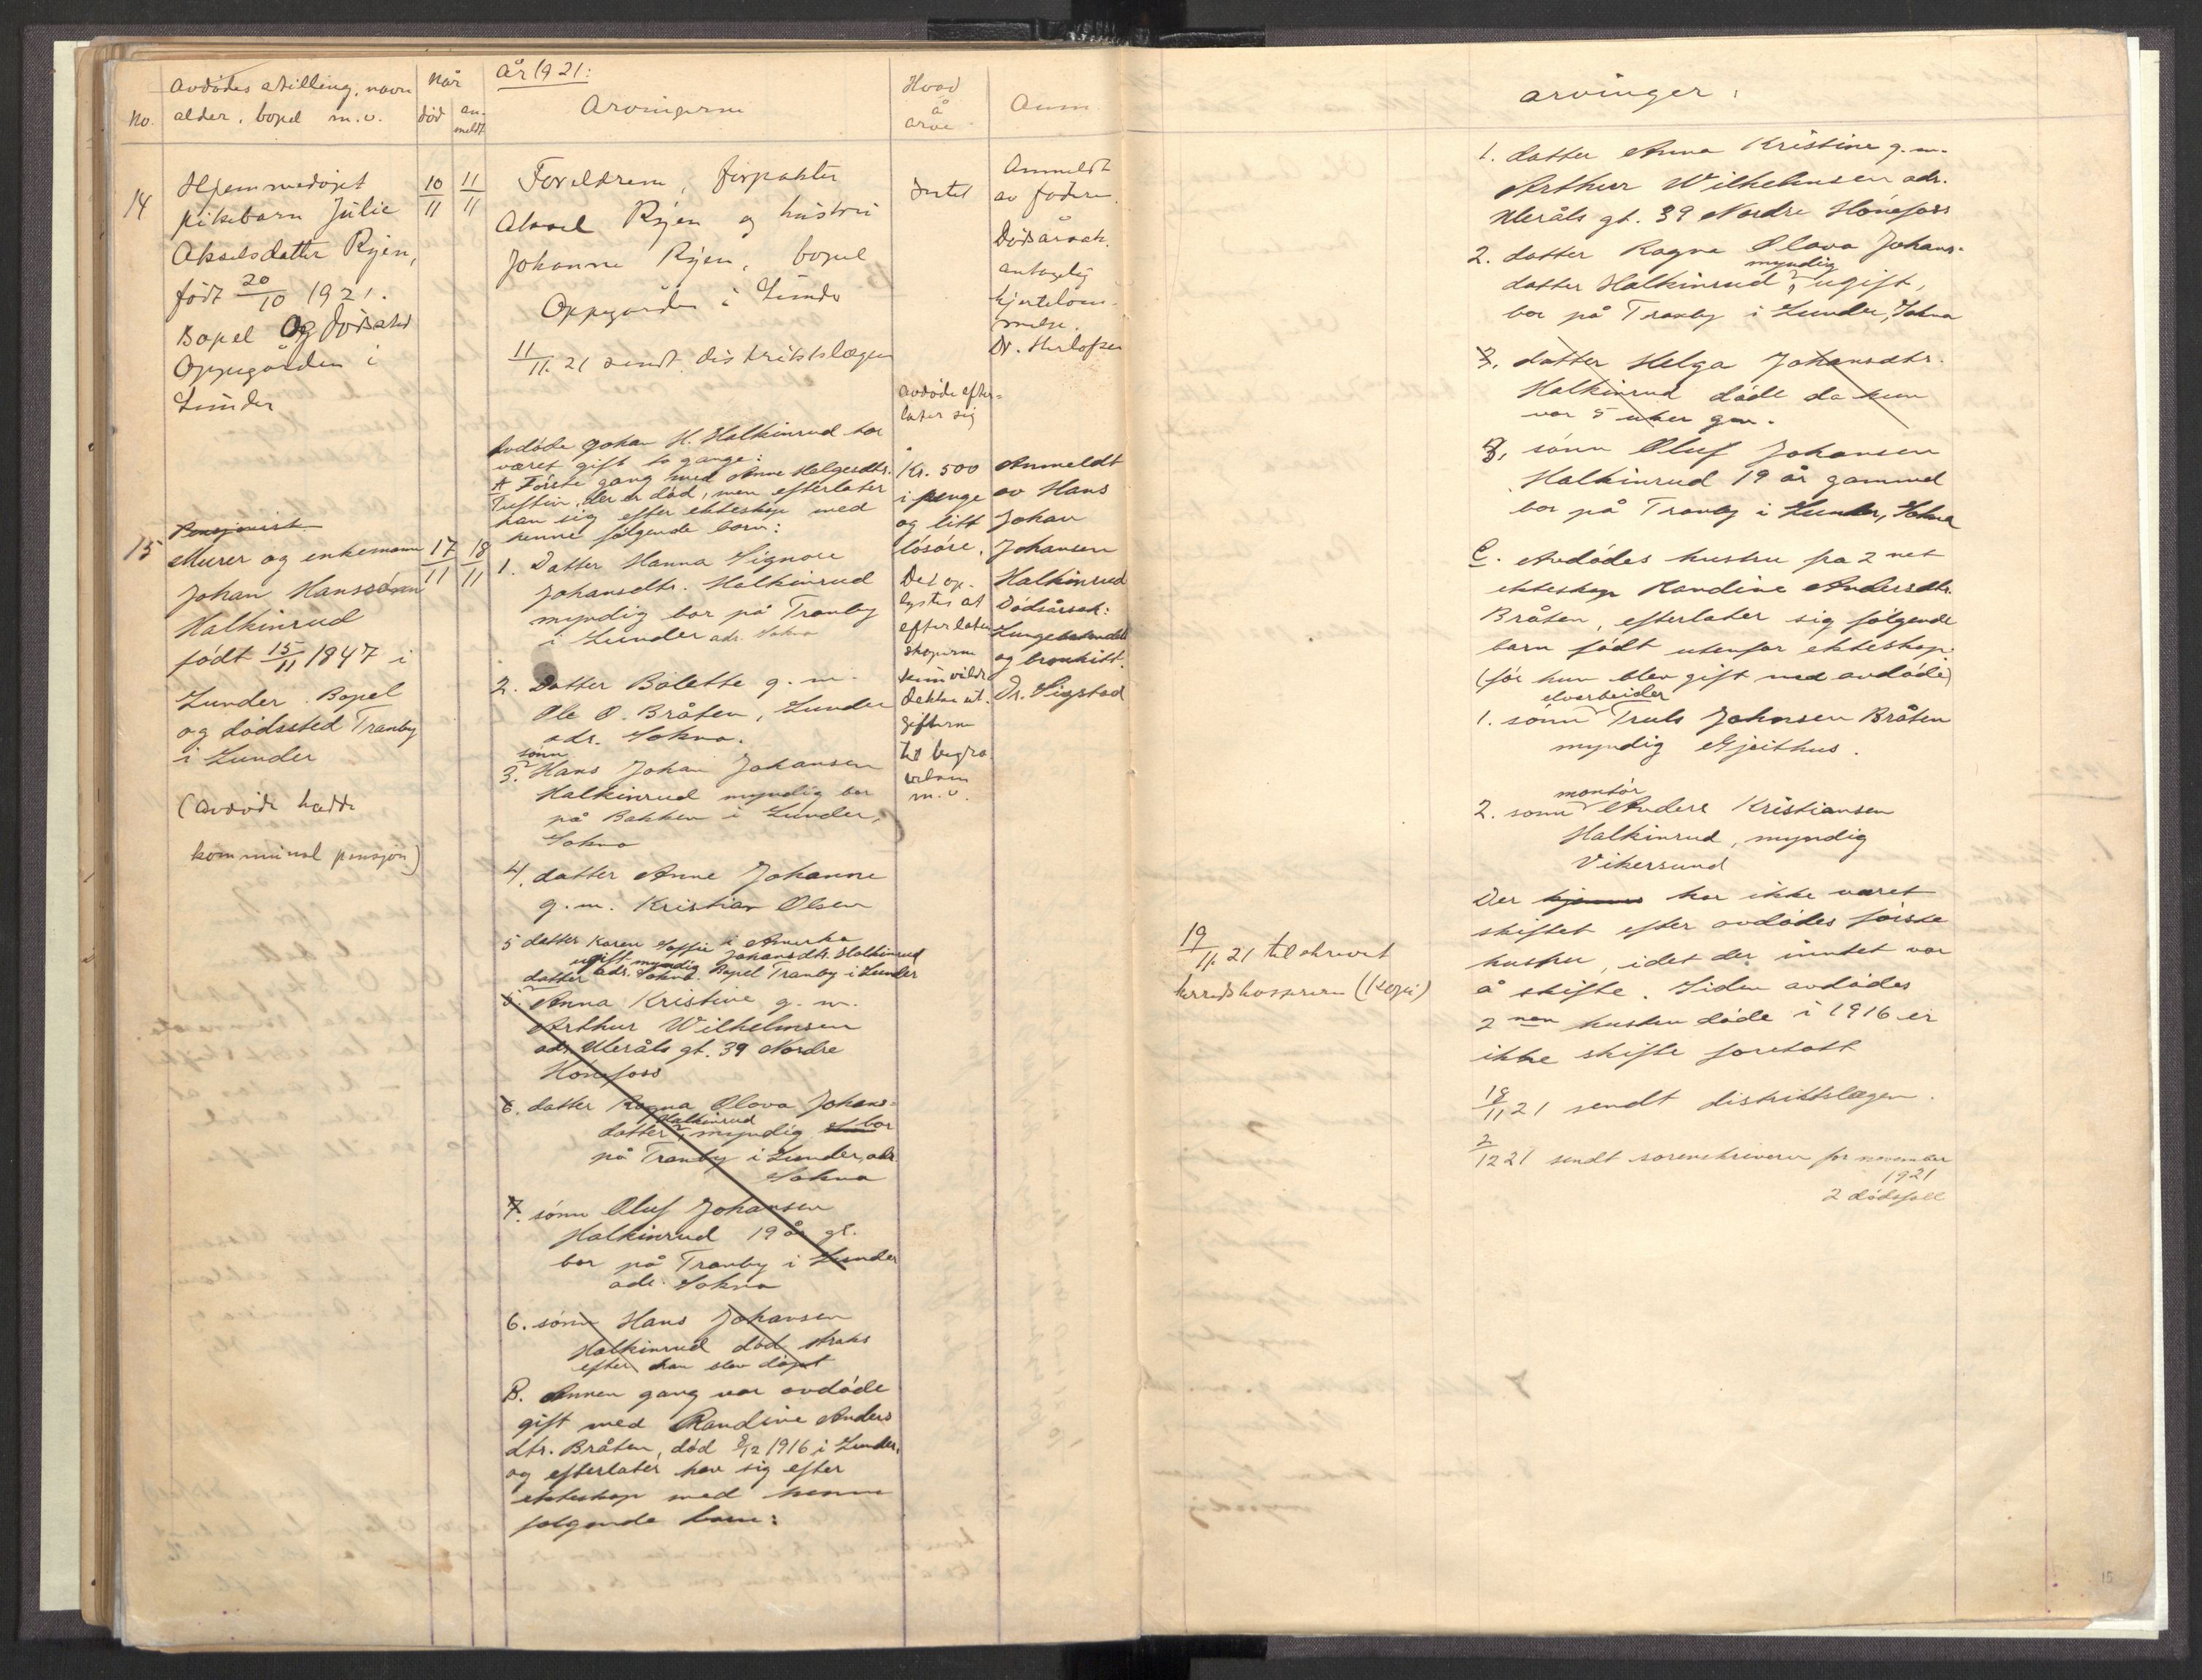 År 1921:
No.
Avdødes stilling, navn
alder, bopel m.v.
Når
død
an-
meldt
Arvingerne
Hvad
å
arve
Anm.
14
Hjemmedøpt
pikebarn Julie
Akselsdatter Rýen,
født 20/10 1921.
Bopel og dødssted
Oppegården i
Lunder
10/11
11/11
Foreldrene, forpakter
Aksel Rýen og hustru
Johanne Rýen, bopel
Oppegården i Lunder
11/11.21 sendt distriktslægen
Intet
Anmeldt
av faderen.
Dødsårsak.
antagelig
hjertelam-
melse.
Dr. Herlofsen
15
Pensjonist
Murer og enkemann
Johan Hanssønn
Halkinrud
født 15/11 1847 i
Lunder. Bopel
og dødssted Tranby
i Lunder
(Avdøde hadde
kommunal pensjon)
17/11
18/11
Avdøde Johan H. Halkinrud har
været gift to gange:
A Første gang med Anne Helgesdtr.
Tuftin, der er død, men efterlater
han sig efter ekteskap med
henne følgende barn:
1. Datter Hanna Signore
Johansdtr. Halkinrud
myndig bor på Tranby
i Lunder adr. Sokna
2. Datter Bolette g. m.
Ole O. Bråten, Lunder
adr. Sokna.
sønn
3. Hans Johan Johansen
Halkinrud myndig bor
på Bakken i Lunder,
Sokna
4. datter Anne Johanne
g. m. Kristian Olsen
i Amerika
5 datter Karen Soffie Johansdtr. Halkinrud
ugift myndig
adr. Sokna. Bopel Tranby i Lunder
datter
5. Anna Kristine g. m.
Arthur Wilhelmsen
adr. Uleråls gt. 39 Nordre
Hønefoss
6. datter Ragna Olava Johans-
Halkinrud
datter, myndig bor
på Tranby i Lunder, adr.
Sokna
7. sønn Oluf Johansen
Halkinrud 19 år gl.
bor på Tranby i Lunder
adr. Sokna
6. sønn Hans Johansen
Halkinrud død straks
efter han blev døpt
B. Annen gang var avdøde
gift med Randine Anders
dtr. Bråten, død 8/12 1916 i Lunder,
og efterlater han sig efter
ekteskap med henne
følgende barn:
Avdøde efter-
later sig
Kr. 500
i penge
og litt
løsøre.
Det op-
lystes at
efterlaten-
skapene
kun vilde
dekke ut-
gifterne
til begra-
velsen
m. v.
Anmeldt
av Hans
Johan
Johansen
Halkinrud
Dødsårsak:
Lungebetendelse
og bronkitt.
Dr. Sigstad
arvinger:
1. datter Anna Kristine g. m.
Arthur Wilhelmsen adr.
Uleråls gt. 39 Nordre Hønefoss
2. datter Ragna Olava Johans-
myndig
datter Halkinrud, ugift,
bor på Tranby i Lunder, Sokna
3. datter Helga Johansdtr.
Halkinrud døde da hun
var 5 uker gm.
3, sønn Oluf Johansen
Halkinrud 19 år gammel
bor på Tranby i Lunder, Sokna
C. Avdødes hustru fra 2net
ekteskap Randine Andersdtr.
Bråten, efterlater sig følgende
barn født utenfor ekteskap
(før hun blev gift med avdøde)
elvarbeider
1. sønn Truls Johnsen Bråten
myndig Gjeithus.
montør
2. sønn Anders Kristiansen
Halkinrud, myndig
Vikersund
Der har ikke været
skiftet efter avdødes første
hustru, idet der inntet var
å skifte. Siden avdødes
2nen hustru døde i 1916 er
ikke skifte foretatt
18/11 21 sendt distriktslægen.
2/12 21 sendt sorenskriveren for november
1921
2 dødsfall
19/11.21 tilskrevet
herredskasseren (Kopi)
15